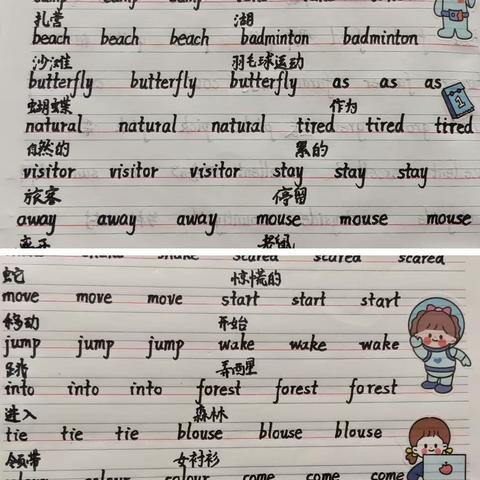 camp camp camp lake lake lake
扎营 湖
beach beach beach badminton badminton
沙滩 羽毛球运动
butterfly butterfly butterfly as as as
蝴蝶 作为
natural natural natural tired tired tired
自然的 累的
visitor visitor visitor stay stay stay
旅客 停留
away away away mouse mouse mouse
离开 老鼠
snake snake snake scared scared scared
蛇 惊慌的
move move move start start start
移动 开始
jump jump jump wake wake wake
跳 弄醒
into into into forest forest forest
进入 森林
tie tie tie blouse blouse blouse
领带 女衬衫
colour colour colour come come come